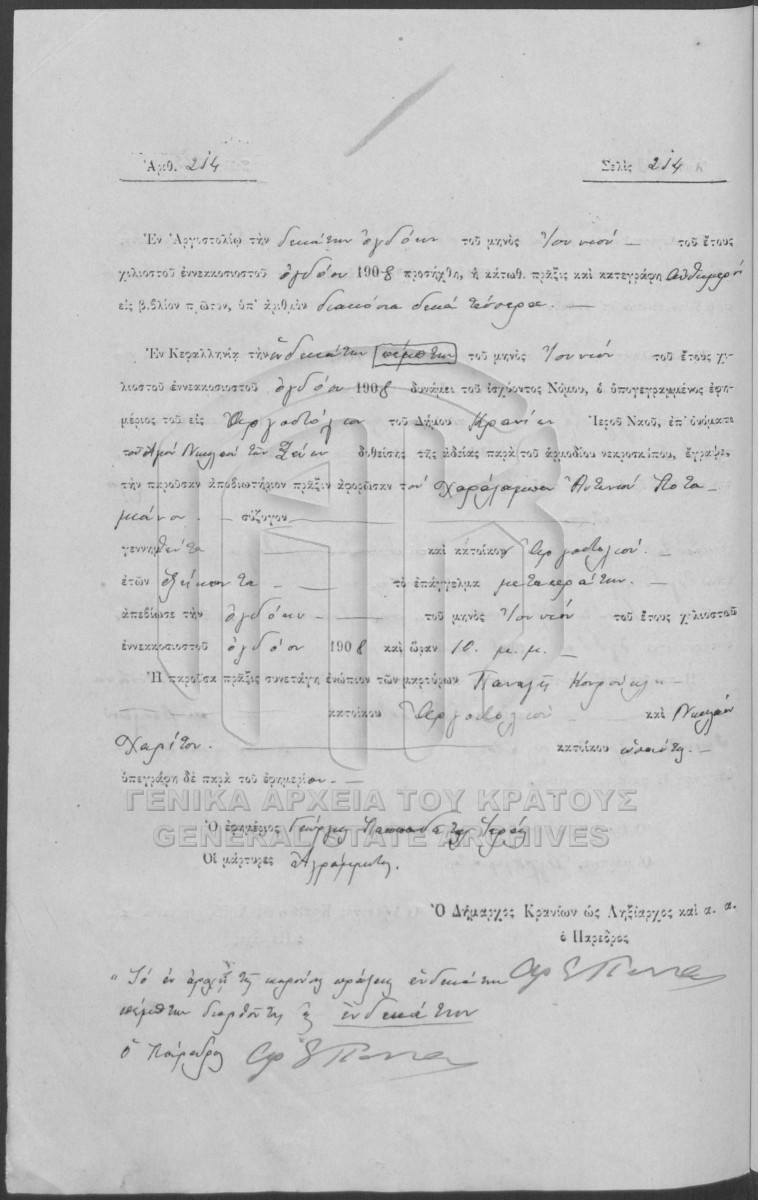 Ἀριθ. 214
Σελὶς 214
Ἐν Ἀργοστολίῳ τὴν δεκάτην ὀγδόην τοῦ μηνὸς Ἰουνίου τοῦ ἔτους
χιλιοστοῦ ἐννεακοσιοστοῦ ὀγδόου 1908 προσήχθη, ἡ κάτωθι πρᾶξις καὶ κατεγράφη αὐθημερὴ
εἰς βιβλίον πρῶτον, ὑπ' ἀριθμὸν διακόσια δεκατέσσερα.
Ἐν Κεφαλληνίᾳ τὴν ἑνδεκάτην πέμπτην τοῦ μηνὸς Ἰουνίου τοῦ ἔτους χι-
λιοστοῦ ἐννεακοσιοστοῦ ὀγδόου 1908 δυνάμει τοῦ ἰσχύοντος Νόμου, ὁ ὑπογεγραμμένος ἐφη-
μέριος τοῦ εἰς Ἀργοστόλιον τοῦ Δήμου Κρανίων Ἱεροῦ Ναοῦ, ἐπ' ὀνόματι
τοῦ Ἁγίου Νικολάου τῶν Ξένων δοθείσης τῆς ἀδείας παρὰ τοῦ ἁρμοδίου νεκροσκόπου, ἔγραψε,
τὴν παροῦσαν ἀποβιωτήριον πρᾶξιν ἀφορῶσαν τὸν Χαράλαμπον Ἀντωνίου Ποτα-
μιάνου. σύζυγον
γεννηθέντα καὶ κατοίκου Ἀργοστολίου.
ἐτῶν ἑξήκοντα τὸ ἐπάγγελμα μεταπράτην.
ἀπεβίωσε τὴν ὀγδόην τοῦ μηνὸς Ἰουνίου τοῦ ἔτους χιλιοστοῦ
ἐννεακοσιοστοῦ ὀγδόου 1908 καὶ ὥραν 10. μ. μ.
Ἡ παροῦσα πρᾶξις συνετάγη ἐνώπιον τῶν μαρτύρων Παναγῆ Κουρούκλη
κατοίκου Ἀργοστολίου καὶ Νικολάου
Χαρίτου. κατοίκου
ὑπεγράφη δὲ παρὰ τοῦ ἐφημερίου.
ΓΕΝΙΚΑ ΑΡΧΕΙΑ ΤΟΥ ΚΡΑΤΟΥΣ
GENERAL STATE ARCHIVES
Ὁ ἐφημέριος Γεώργιος Ἱερεὺς
Οἱ μάρτυρες Ἀγράμματοι.
Ὁ Δήμαρχος Κρανίων ὡς Ληξίαρχος καὶ α. α.
ὁ Πάρεδρος
"Τὸ ἐν ἀρχῇ τῆς παρούσης πράξεως ἑνδεκάτην
πέμπτην διορθοῦται εἰς ἑνδεκάτην
ὁ Πάρεδρος